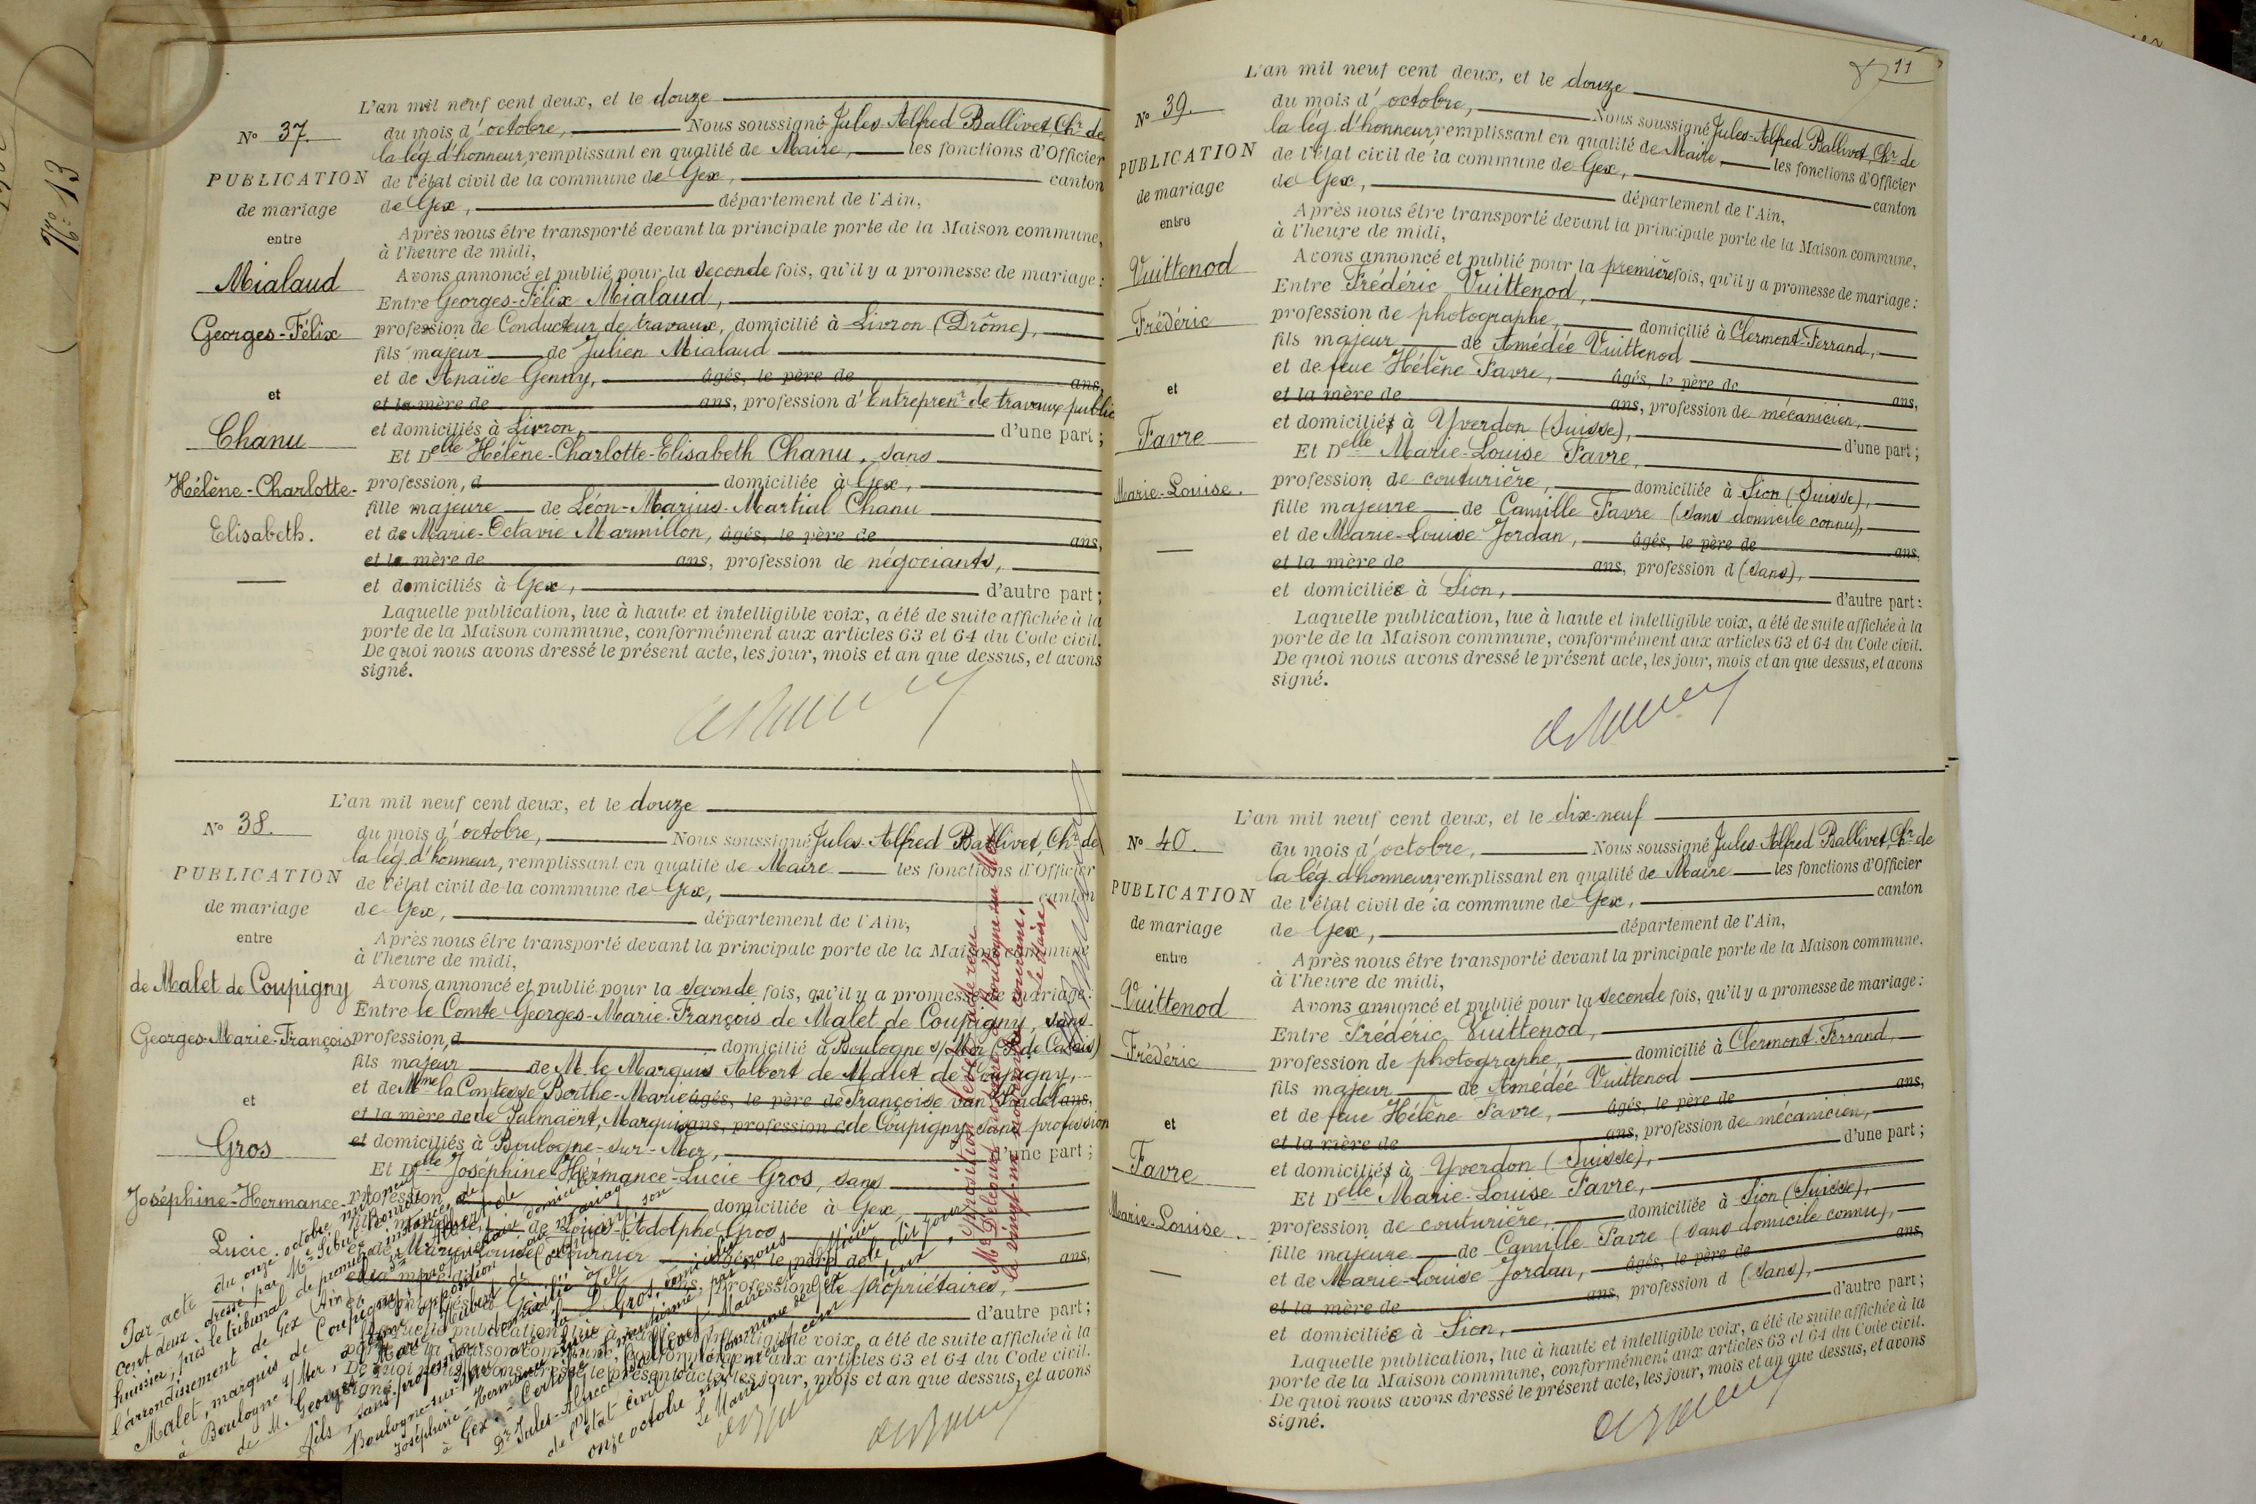 No 13
L'an mil neuf cent deux, et le douze
No 37.
du mois d'octobre, Nous soussigné Jules Alfred Ballivet, Chr de
la lég. d'honneur, remplissant en qualité de Maire, les fonctions d'Officier
PUBLICATION
de l'état civil de la commune de Gex, canton
de mariage
de Gex, département de l'Ain,
entre
Après nous être transporté devant la principale porte de la Maison commune,
à l'heure de midi,
Mialaud
Avons annoncé et publié pour la seconde fois, qu'il y a promesse de mariage :
Entre Georges-Félix Mialaud,
Georges-Félix
profession de Conducteur de travaux, domicilié à Livron (Drôme),
fils majeur de Julien Mialaud
et de Anaïse Genny, âgés, le père de ans,
et
et la mère de ans, profession d'Entreprenr de travaux public
Chanu
et domiciliés à Livron, d'une part ;
Et Delle Hélène-Charlotte-Elisabeth Chanu, sans
Hélène-Charlotte-
profession, d domiciliée à Gex,
fille majeure de Léon-Marius-Martial Chanu
Elisabeth.
et de Marie-Octavie Marmillon, âgés, le père de ans,
et la mère de ans, profession de négociants,
et domiciliés à Gex, d'autre part ;
Laquelle publication, lue à haute et intelligible voix, a été de suite affichée à la
porte de la Maison commune, conformément aux articles 63 et 64 du Code civil.
De quoi nous avons dressé le présent acte, les jour, mois et an que dessus, et avons
signé.
L'an mil neuf cent deux, et le douze
No 38.
du mois d'octobre, Nous soussigné Jules Alfred Ballivet, Chr de
la lég. d'honneur, remplissant en qualité de Maire les fonctions d'Officier
PUBLICATION
de l'état civil de la commune de Gex, canton
de mariage
de Gex, département de l'Ain,
entre
Après nous être transporté devant la principale porte de la Maison commune
à l'heure de midi,
de Malet de Coupigny
Avons annoncé et publié pour la seconde fois, qu'il y a promesse de mariage :
Entre le Comte Georges-Marie-François de Malet de Coupigny, sans
Georges-Marie-François
profession, d domicilié à Boulogne s/Mer (P. de Calais)
fils majeur de M. le Marquis Albert de Malet de Coupigny,
et de Mme la Comtesse Berthe-Marie âgés, le père de Françoise van Pradel ans,
et
et la mère de de Palmaërt, Marquise ans, profession de de Coupigny, sans profession
Gros
et domiciliés à Boulogne-sur-Mer, d'une part ;
Et Delle Joséphine-Hermance-Lucie Gros, sans
Joséphine-Hermance-
profession, domiciliée à Gex,
Lucie.
de Louis-Adolphe Gros
et de Marie-Louise Fournier
profession de propriétaires,
d'autre part ;
voix, a été de suite affichée à la
aux articles 63 et 64 du Code civil.
les jour, mois et an que dessus, et avons
signé.
Par acte du onze octobre
cent deux dressé par Mr Sibut
huissier, près le tribunal de première instance de
l'arrondissement de Gex (Ain)
Malet, marquis de Coupigny, propriétaire
à Boulogne s/Mer, opposition au mariage
de M. Georges
fils, sans profession, domicilié à
Boulogne-sur-Mer, avec la Dlle Gros,
Joséphine-Hermance-Lucie
à Gex. Certifié et mentionné par nous
Dr Jules-Alfred Ballivet, Maire
de l'état civil de la commune de Gex
onze octobre mil neuf cent deux.
Le Maire,
Le Maire,
11
L'an mil neuf cent deux, et le douze
No 39.
du mois d'octobre, Nous soussigné Jules-Alfred Ballivet, Chr de
la lég. d'honneur, remplissant en qualité de Maire les fonctions d'Officier
PUBLICATION
de l'état civil de la commune de Gex, canton
de mariage
de Gex, département de l'Ain,
entre
Après nous être transporté devant la principale porte de la Maison commune,
à l'heure de midi,
Vuittenod
Avons annoncé et publié pour la première fois, qu'il y a promesse de mariage :
Entre Frédéric Vuittenod,
Frédéric
profession de photographe, domicilié à Clermont-Ferrand,
fils majeur de Amédée Vuittenod
et de feue Hélène Favre, âgés, le père de ans,
et
et la mère de ans, profession de mécanicien,
et domiciliés à Yverdon (Suisse), d'une part ;
Favre
Et Delle Marie-Louise Favre,
Marie-Louise.
profession de couturière, domiciliée à Sion (Suisse),
fille majeure de Camille Favre (sans domicile connu),
et de Marie-Louise Jordan, âgés, le père de ans,
et la mère de ans, profession d (sans),
et domiciliée à Sion, d'autre part :
Laquelle publication, lue à haute et intelligible voix, a été de suite affichée à la
porte de la Maison commune, conformément aux articles 63 et 64 du Code civil.
De quoi nous avons dressé le présent acte, les jour, mois et an que dessus, et avons
signé.
L'an mil neuf cent deux, et le dix-neuf
No 40.
du mois d'octobre, Nous soussigné Jules Alfred Ballivet, Chr de
la lég. d'honneur, remplissant en qualité de Maire les fonctions d'Officier
PUBLICATION
de l'état civil de la commune de Gex, canton
de mariage
de Gex, département de l'Ain,
entre
Après nous être transporté devant la principale porte de la Maison commune,
à l'heure de midi,
Vuittenod
Avons annoncé et publié pour la seconde fois, qu'il y a promesse de mariage :
Entre Frédéric Vuittenod,
Frédéric
profession de photographe, domicilié à Clermont-Ferrand,
fils majeur de Amédée Vuittenod
et de feue Hélène Favre, âgés, le père de ans,
et
et la mère de ans, profession de mécanicien,
Favre
et domiciliés à Yverdon (Suisse), d'une part ;
Et Delle Marie-Louise Favre,
Marie-Louise.
profession de couturière, domiciliée à Sion (Suisse),
fille majeure de Camille Favre (sans domicile connu),
et de Marie-Louise Jordan, âgés, le père de ans,
et la mère de ans, profession d (sans),
et domiciliée à Sion, d'autre part ;
Laquelle publication, lue à haute et intelligible voix, a été de suite affichée à la
porte de la Maison commune, conformément aux articles 63 et 64 du Code civil.
De quoi nous avons dressé le présent acte, les jour, mois et an que dessus, et avons
signé.